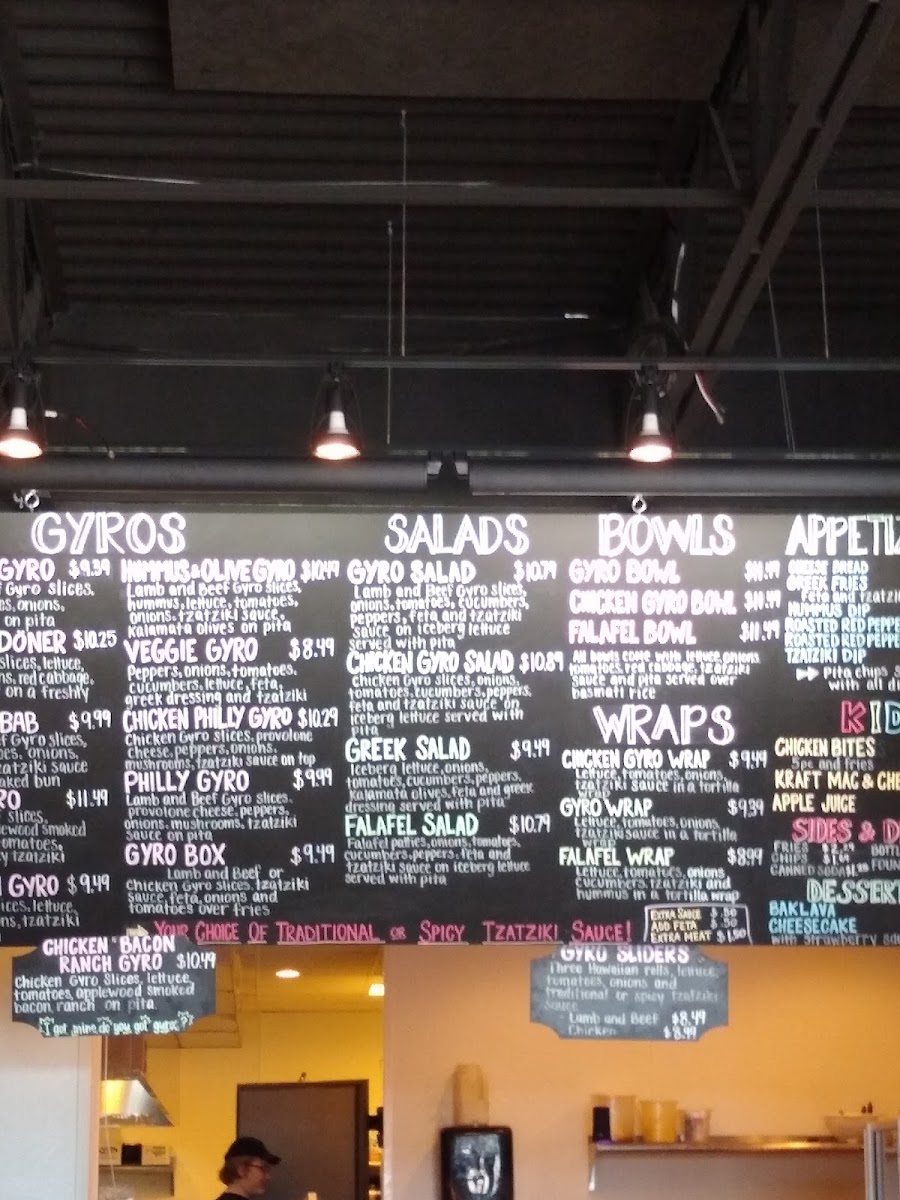 GYROS
GYRO $9.39
Gyro slices,
es, onions,
on pita
DONER $10.25
slices, lettuce,
ns, red cabbage,
on a freshly
BAB $9.99
f Gyro slices,
oes, onions,
zatziki sauce
aked bun
RO $11.49
slices,
lewood smoked
omatoes,
y tzatziki
GYRO $9.49
ices, lettuce,
ns, tzatziki
HUMMUS & OLIVE GYRO $10.49
Lamb and Beef Gyro slices,
hummus, lettuce, tomatoes,
onions, tzatziki sauce,
kalamata olives on pita
VEGGIE GYRO $8.49
Peppers, onions, tomatoes,
cucumbers, lettuce, feta,
greek dressing and tzatziki
CHICKEN PHILLY GYRO $10.29
Chicken Gyro slices, provolone
cheese, peppers, onions,
mushrooms, tzatziki sauce on top
PHILLY GYRO $9.99
Lamb and Beef Gyro slices,
provolone cheese, peppers,
onions, mushrooms, tzatziki
sauce on pita
GYRO BOX $9.49
Lamb and Beef or
Chicken Gyro slices, tzatziki
sauce, feta, onions and
tomatoes over fries
SALADS
GYRO SALAD $10.79
Lamb and Beef Gyro slices,
onions, tomatoes, cucumbers,
peppers, feta and tzatziki
sauce on iceberg lettuce
served with pita
CHICKEN GYRO SALAD $10.89
Chicken Gyro slices, onions,
tomatoes, cucumbers, peppers,
feta and tzatziki sauce on
iceberg lettuce served with
pita
GREEK SALAD $9.49
Iceberg lettuce, onions,
tomatoes, cucumbers, peppers,
kalamata olives, feta and greek
dressing served with pita
FALAFEL SALAD $10.79
Falafel patties, onions, tomatoes,
cucumbers, peppers, feta and
tzatziki sauce on iceberg lettuce
served with pita
BOWLS
GYRO BOWL
CHICKEN GYRO BOWL
FALAFEL BOWL $11.49
All bowls come with lettuce, onions
tomatoes, red cabbage, tzatziki
sauce and pita served over
basmati rice
WRAPS
CHICKEN GYRO WRAP $9.49
Lettuce, tomatoes, onions,
tzatziki sauce in a tortilla
wrap
GYRO WRAP $9.39
Lettuce, tomatoes, onions,
tzatziki sauce in a tortilla
wrap
FALAFEL WRAP $8.99
Lettuce, tomatoes, onions,
cucumbers, tzatziki and
hummus in a tortilla wrap
EXTRA SAUCE $.50
ADD FETA $.50
EXTRA MEAT $1.50
APPETIZ
CHEESE BREAD
GREEK FRIES
Feta and tzatzi
HUMMUS DIP
ROASTED RED PEPPE
ROASTED RED PEPPE
TZATZIKI DIP
Pita chips s
with all di
KID
CHICKEN BITES
5pc and fries
KRAFT MAC & CHE
APPLE JUICE
SIDES & D
FRIES BOTT
CHIPS
CANNED SODA FOUN
DESSERT
BAKLAVA
CHEESECAKE
with strawberry sau
YOUR CHOICE OF TRADITIONAL OR SPICY TZATZIKI SAUCE!
CHICKEN BACON
RANCH GYRO $10.49
Chicken Gyro Slices, lettuce,
tomatoes, applewood smoked
bacon, ranch on pita
I got mine do you got gyros?
GYRO SLIDERS
Three Hawaiian rolls, lettuce,
tomatoes, onions and
traditional or spicy tzatziki
sauce
Lamb and Beef $8.49
Chicken $8.99